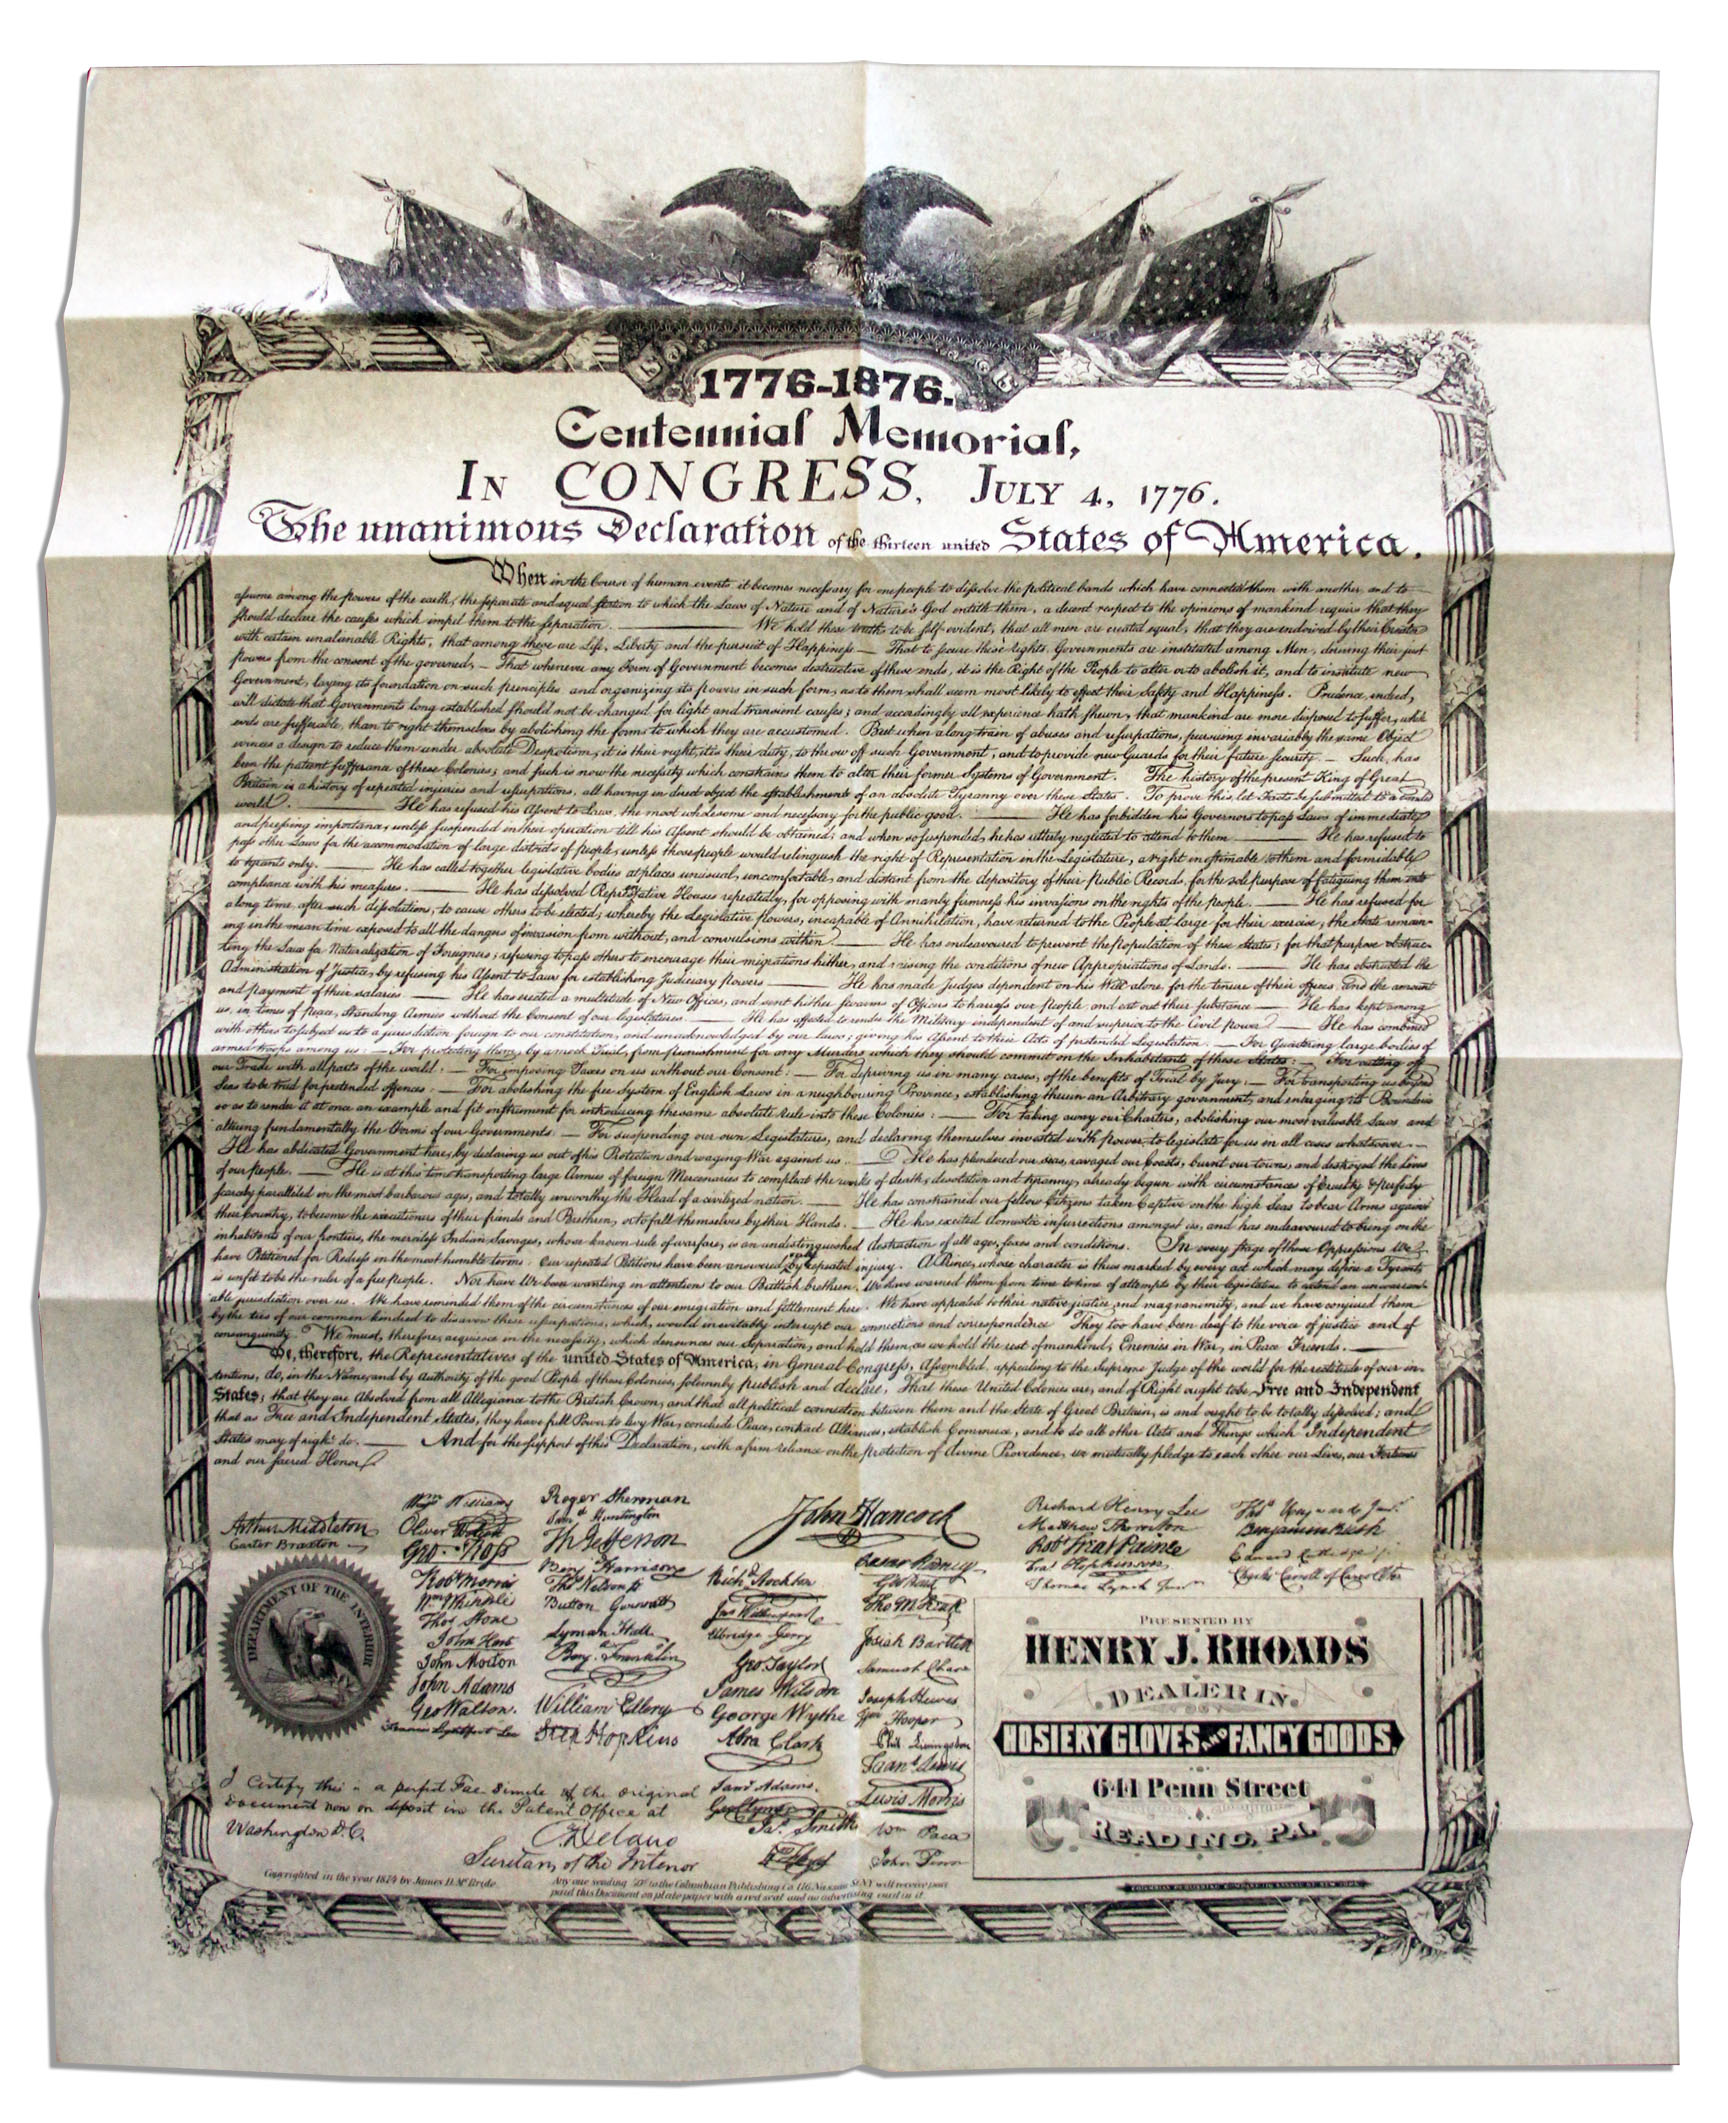 1776-1876.
Centennial Memorial,
In CONGRESS, July 4, 1776.
The unanimous Declaration of the thirteen united States of America.
When in the Course of human events it becomes necessary for one people to dissolve the political bands which have connected them with another, and to
assume among the powers of the earth, the separate and equal station to which the Laws of Nature and of Nature's God entitle them, a decent respect to the opinions of mankind requires that they
should declare the causes which impel them to the separation. We hold these truths to be self-evident, that all men are created equal, that they are endowed by their Creator
with certain unalienable Rights, that among these are Life, Liberty and the pursuit of Happiness — That to secure these rights, Governments are instituted among Men, deriving their just
powers from the consent of the governed, — That whenever any Form of Government becomes destructive of these ends, it is the Right of the People to alter or to abolish it, and to institute new
Government, laying its foundation on such principles and organizing its powers in such form, as to them shall seem most likely to effect their Safety and Happiness. Prudence, indeed,
will dictate that Governments long established should not be changed for light and transient causes; and accordingly all experience hath shewn, that mankind are more disposed to suffer, while
evils are sufferable, than to right themselves by abolishing the forms to which they are accustomed. But when a long train of abuses and usurpations, pursuing invariably the same Object
evinces a design to reduce them under absolute Despotism, it is their right, it is their duty, to throw off such Government, and to provide new Guards for their future security. — Such, has
been the patient sufferance of these Colonies; and such is now the necessity which constrains them to alter their former Systems of Government. The history of the present King of Great
Britain is a history of repeated injuries and usurpations, all having in direct object the establishment of an absolute Tyranny over these States. To prove this, let Facts be submitted to a candid
world. — He has refused his Assent to Laws, the most wholesome and necessary for the public good. — He has forbidden his Governors to pass Laws of immediate
and pressing importance, unless suspended in their operation till his Assent should be obtained; and when so suspended, he has utterly neglected to attend to them — He has refused to
pass other Laws for the accommodation of large districts of people, unless those people would relinquish the right of Representation in the Legislature, a right inestimable to them and formidable
to tyrants only. — He has called together legislative bodies at places unusual, uncomfortable, and distant from the depository of their Public Records, for the sole purpose of fatiguing them into
compliance with his measures. — He has dissolved Representative Houses repeatedly, for opposing with manly firmness his invasions on the rights of the people. — He has refused for
a long time, after such dissolutions, to cause others to be elected; whereby the Legislative powers, incapable of Annihilation, have returned to the People at large for their exercise; the State remain-
ing in the mean time exposed to all the dangers of invasion from without, and convulsions within. — He has endeavoured to prevent the population of these States; for that purpose obstruc-
ting the Laws for Naturalization of Foreigners; refusing to pass others to encourage their migrations hither, and raising the conditions of new Appropriations of Lands. — He has obstructed the
Administration of Justice, by refusing his Assent to Laws for establishing Judiciary powers — He has made Judges dependent on his Will alone, for the tenure of their offices, and the amount
and payment of their salaries. — He has erected a multitude of New Offices, and sent hither swarms of Officers to harrass our people, and eat out their substance — He has kept among
us, in times of peace, Standing Armies without the Consent of our legislatures. — He has affected to render the Military independent of and superior to the Civil power. — He has combined
with others to subject us to a jurisdiction foreign to our constitution, and unacknowledged by our laws; giving his Assent to their Acts of pretended Legislation. — For Quartering large bodies of
armed troops among us: — For protecting them, by a mock Trial, from punishment for any Murders which they should commit on the Inhabitants of these States: — For cutting off
our Trade with all parts of the world: — For imposing Taxes on us without our Consent: — For depriving us in many cases, of the benefits of Trial by Jury: — For transporting us beyond
Seas to be tried for pretended offences — For abolishing the free System of English Laws in a neighbouring Province, establishing therein an Arbitrary government, and enlarging its Boundaries
so as to render it at once an example and fit instrument for introducing the same absolute rule into these Colonies: — For taking away our Charters, abolishing our most valuable Laws, and
altering fundamentally the Forms of our Governments. — For suspending our own Legislatures, and declaring themselves invested with power to legislate for us in all cases whatsoever. —
He has abdicated Government here, by declaring us out of his Protection and waging War against us. — He has plundered our seas, ravaged our Coasts, burnt our towns, and destroyed the lives
of our people. — He is at this time transporting large Armies of foreign Mercenaries to compleat the works of death, desolation and tyranny, already begun with circumstances of Cruelty & perfidy
scarcely paralleled in the most barbarous ages, and totally unworthy the Head of a civilized nation. — He has constrained our fellow Citizens taken Captive on the high Seas to bear Arms against
their Country, to become the executioners of their friends and Brethren, or to fall themselves by their Hands. — He has excited domestic insurrections amongst us, and has endeavoured to bring on the
inhabitants of our frontiers, the merciless Indian Savages, whose known rule of warfare, is an undistinguished destruction of all ages, sexes and conditions. In every stage of these Oppressions We
have Petitioned for Redress in the most humble terms: Our repeated Petitions have been answered by repeated injury. A Prince, whose character is thus marked by every act which may define a Tyrant,
is unfit to be the ruler of a free people. Nor have We been wanting in attentions to our Brittish brethren. We have warned them from time to time of attempts by their legislature to extend an unwarrant-
able jurisdiction over us. We have reminded them of the circumstances of our emigration and settlement here. We have appealed to their native justice and magnanimity, and we have conjured them
by the ties of our common kindred to disavow these usurpations, which, would inevitably interrupt our connections and correspondence They too have been deaf to the voice of justice and of
consanguinity. We must, therefore, acquiesce in the necessity, which denounces our Separation, and hold them, as we hold the rest of mankind, Enemies in War, in Peace Friends. —
We, therefore, the Representatives of the united States of America, in General Congress, Assembled, appealing to the Supreme Judge of the world for the rectitude of our in-
tentions, do, in the Name, and by Authority of the good People of these Colonies, solemnly publish and declare, That these United Colonies are, and of Right ought to be Free and Independent
States; that they are Absolved from all Allegiance to the British Crown, and that all political connection between them and the State of Great Britain, is and ought to be totally dissolved; and
that as Free and Independent States, they have full Power to levy War, conclude Peace, contract Alliances, establish Commerce, and to do all other Acts and Things which Independent
States may of right do. — And for the support of this Declaration, with a firm reliance on the protection of divine Providence, we mutually pledge to each other our Lives, our Fortunes
and our sacred Honor.
Arthur Middleton
Carter Braxton
Wm Williams
Oliver Wolcott
Geo. Ross
Robt Morris
Wm Whipple
Thos Stone
John Hart
John Morton
John Adams
Geo Walton.
Francis Lightfoot Lee
Roger Sherman
Saml Huntington
Th Jefferson
Benj Harrison
Thos Nelson jr
Button Gwinnett
Lyman Hall
Benj. Franklin
William Ellery
Step Hopkins
John Hancock
Richd Stockton
Jno Witherspoon
Elbridge Gerry
Geo Taylor
James Wilson
George Wythe
Abra Clark
Saml Adams.
Geo Clymer
Jas. Smith
Caesar Rodney
Geo Read
Tho M:Kean
Josiah Bartlett
Samuel Chase
Joseph Hewes
Wm Hooper
Phil. Livingston
Frans. Lewis
Lewis Morris
Wm Paca
John Penn
Richard Henry Lee
Matthew Thornton
Robt Treat Paine
Fras Hopkinson
Thomas Lynch Junr
Thos Heyward Junr.
Benjamin Rush
Edward Rutledge
Charles Carroll of Carrollton
DEPARTMENT OF THE INTERIOR
I Certify this is a perfect Fac-Simile of the original
Document now on deposit in the Patent Office at
Washington D.C.
C. Delano
Secretary of the Interior
Copyrighted in the year 1874 by James D. McBride
PRESENTED BY
HENRY J. RHOADS
DEALER IN
HOSIERY GLOVES AND FANCY GOODS.
641 Penn Street
READING, PA.